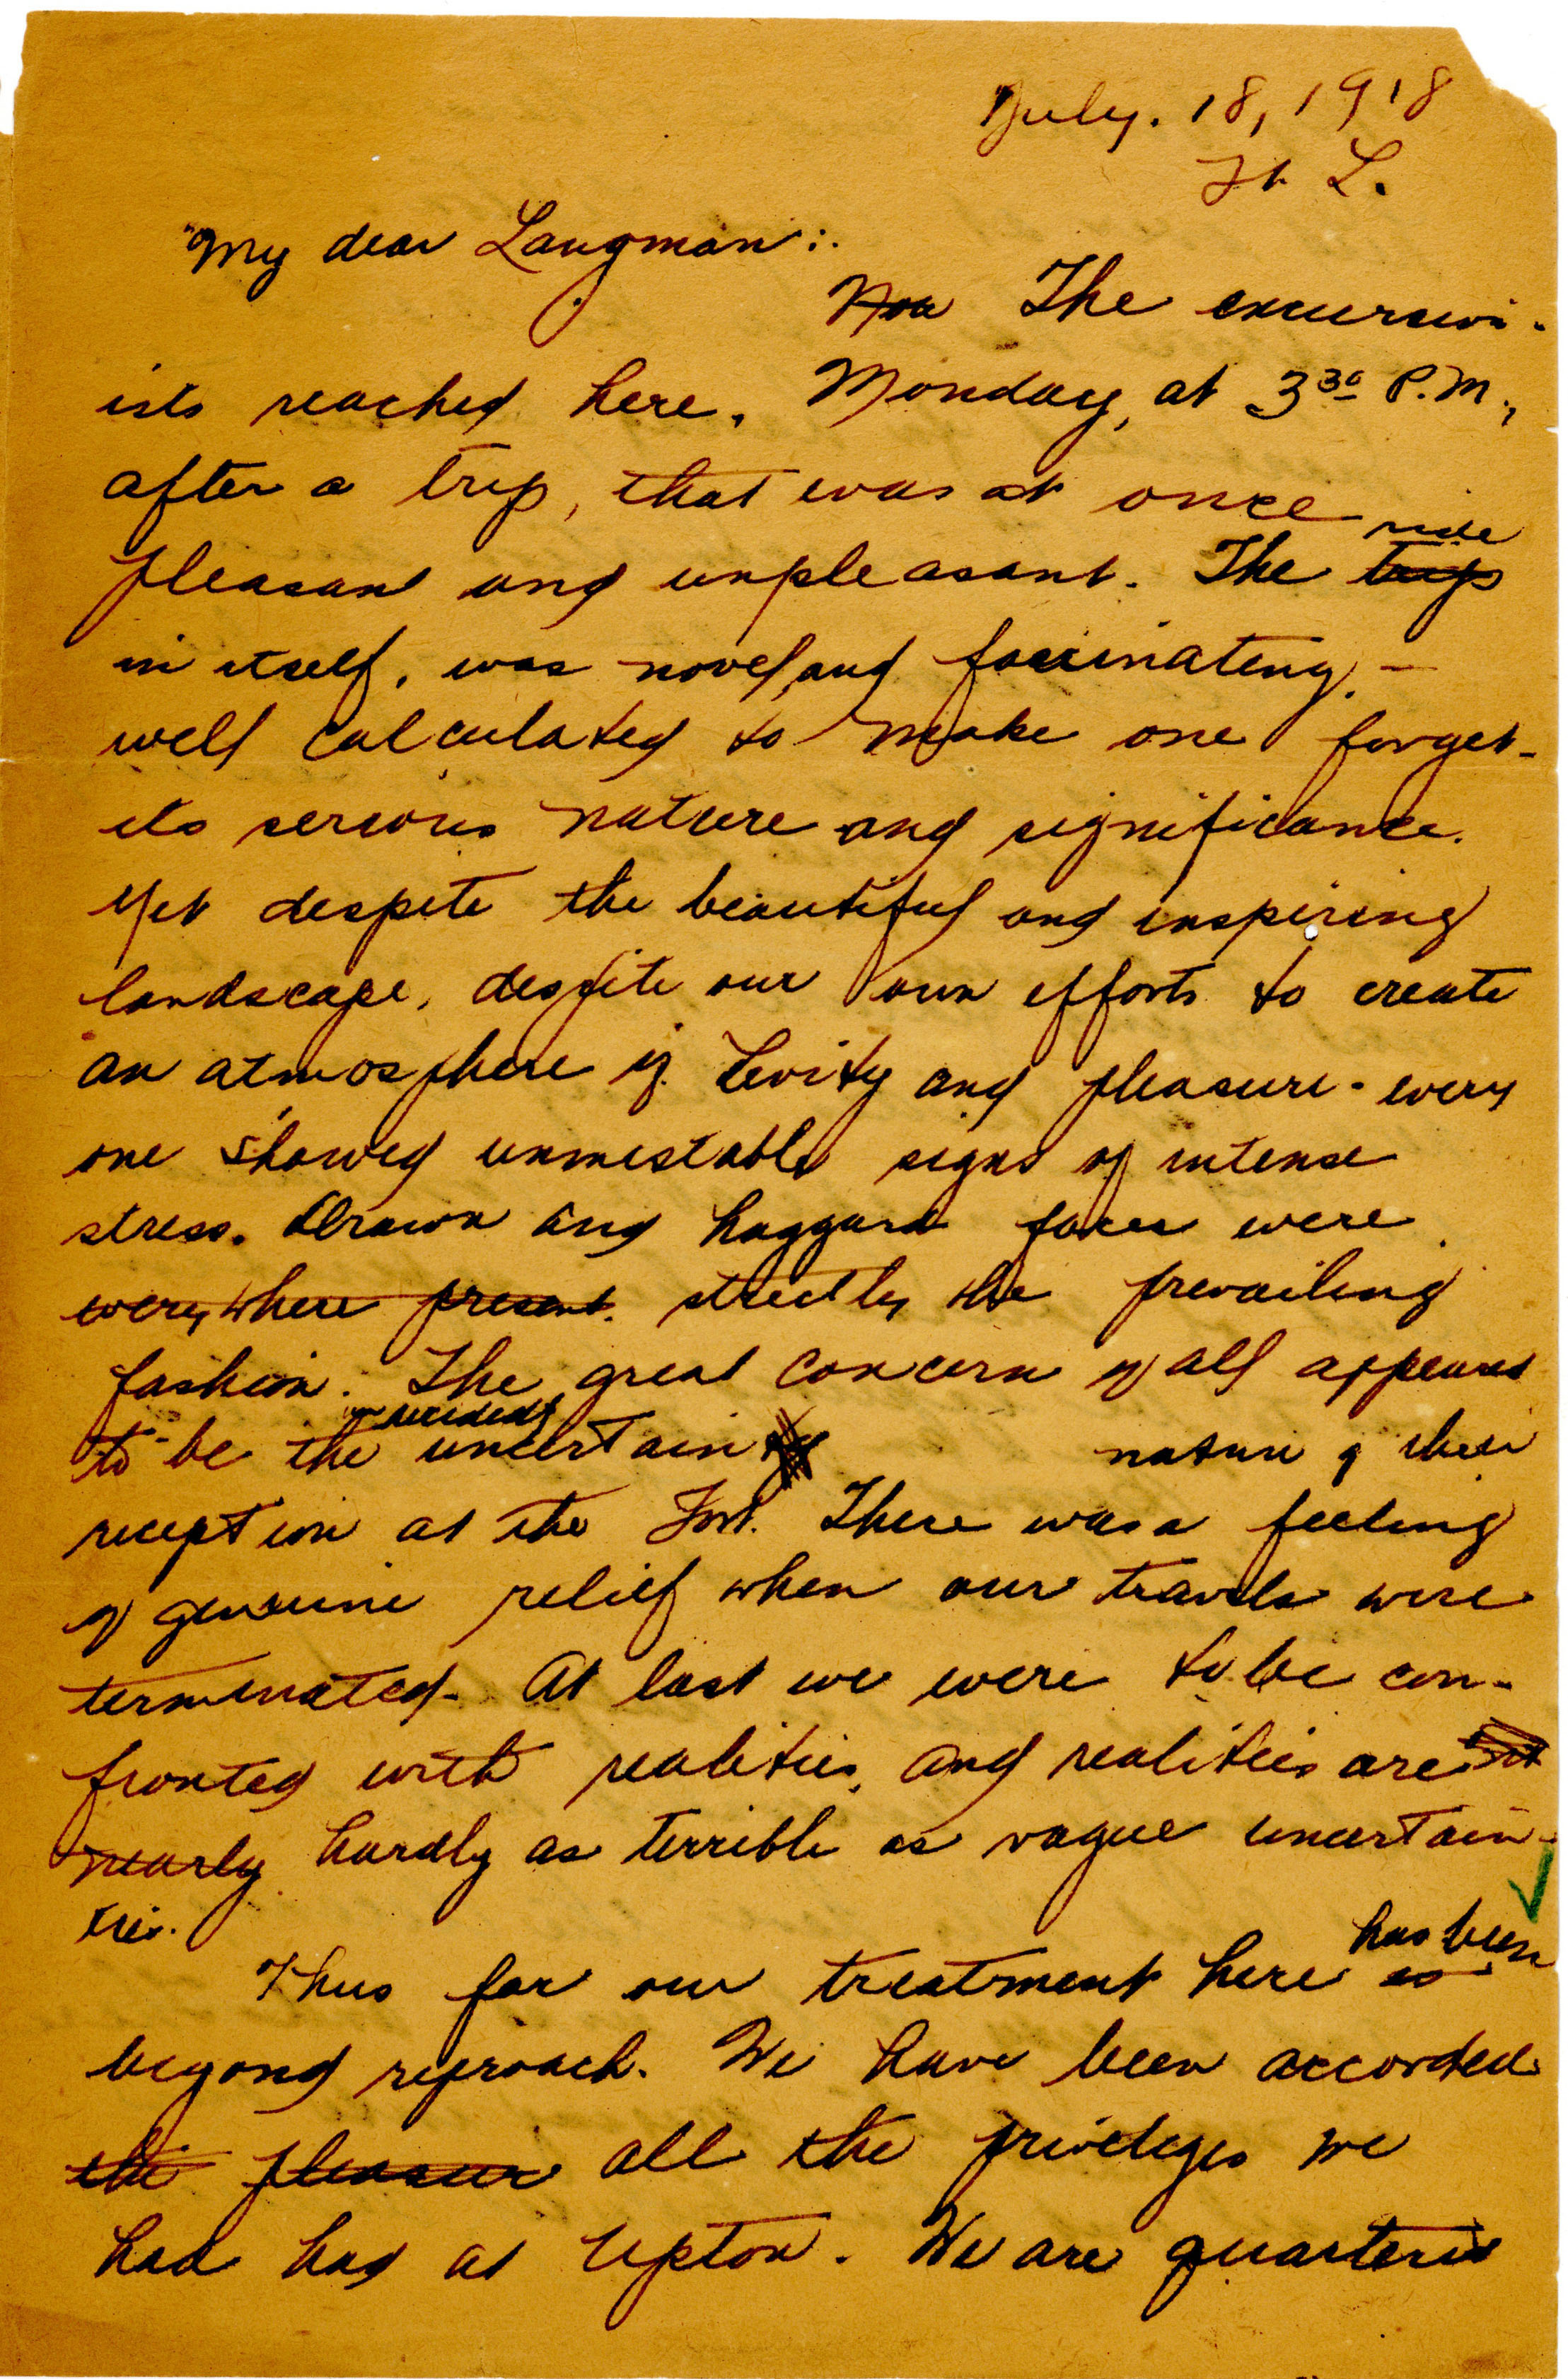 July. 18, 1918
Ft L.
My dear Langman:.
The excursion-
ists reached here, Monday, at 3 30 P.M.,
after a trip, that was at once
pleasant and unpleasant. The trip ride
in itself, was novel, and fascinating, -
well calculated to make one forget
its serious nature and significance.
Yet despite the beautiful and inspiring
landscape, despite our own efforts to create
an atmosphere of levity and pleasure - every
one showed unmistable signs of intense
stress. Drawn and haggard faces were
everywhere present. strictly the prevailing
fashion. The great concern of all appeared
to be the decidedly uncertain nature of their
reception at the Fort. There was a feeling
of genuine relief when our travels were
terminated. At last we were to be con-
fronted with realities, and realities are
nearly hardly as terrible as vague uncertain-
ties.
Thus far our treatment here is has been
beyond reproach. We have been accorded
the pleasure all the privileges we
had had at Upton. We are quartered